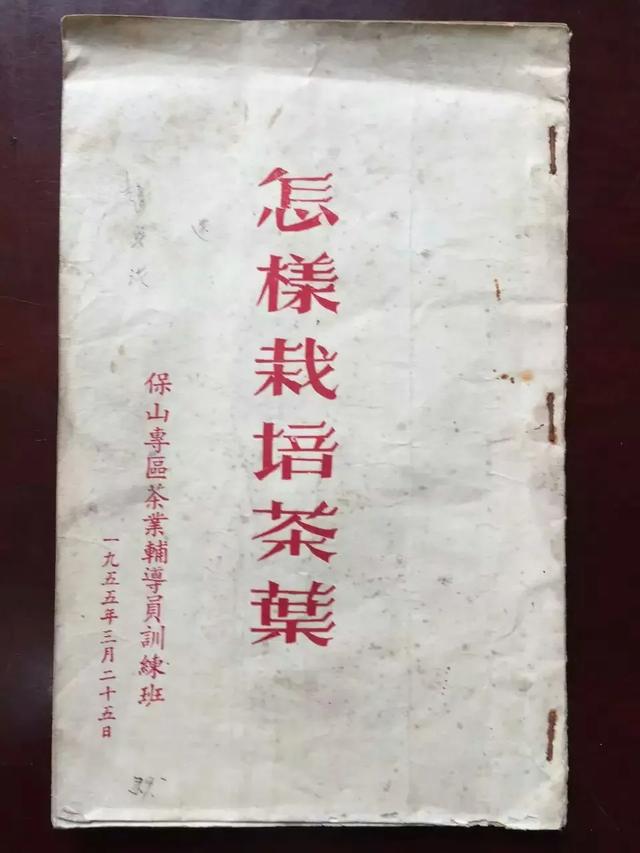 怎樣栽培茶葉
保山專區茶業輔導員訓練班
一九五五年三月二十五日